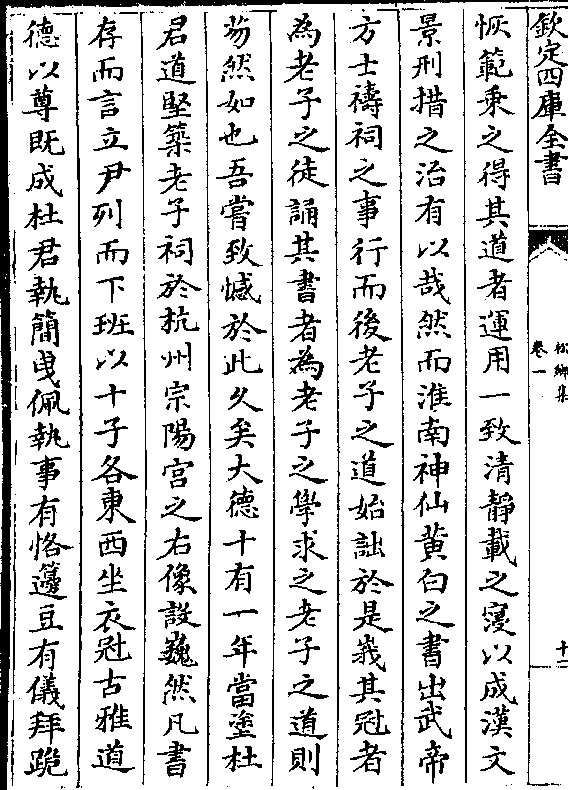 欽定四庫全書
松鄉集
卷一
十二
恢範秉之得其道者運用一致清靜載之寖以成漢文
景刑措之治有以哉然而淮南神仙黄白之書出武帝
方士禱祠之事行而後老子之道始詘於是峩其冠者
為老子之徒誦其書者為老子之學求之老子之道則
芴然如也吾嘗致憾於此久矣大德十有一年當塗杜
君道堅築老子祠於杭州宗陽宫之右像設巍然凡書
存而言立尹列而下班以十子各東西坐衣冠古雅道
德以尊既成杜君執簡曵佩執事有恪籩豆有儀拜跪